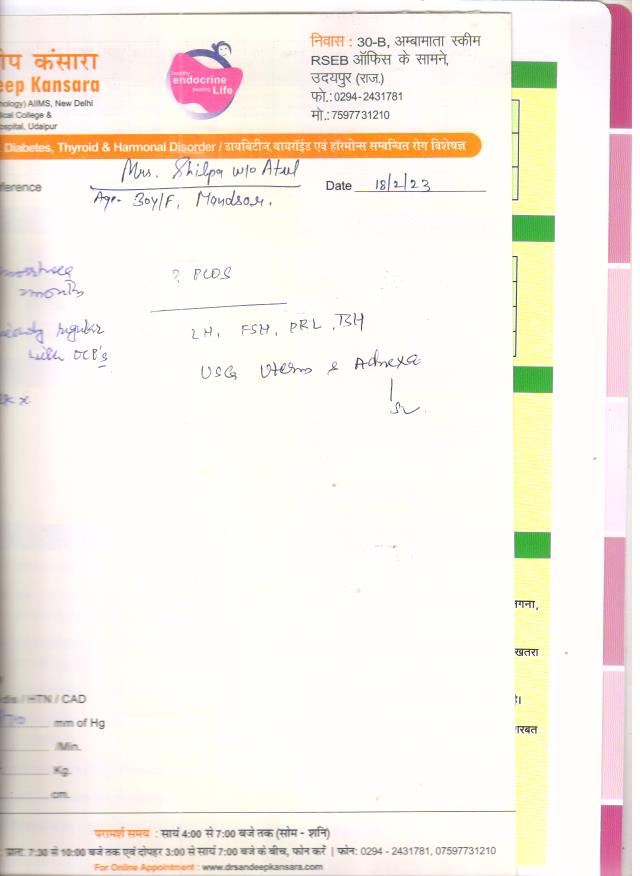 ीप कंसारा
eep Kansara
nology) AIIMS, New Delhi
ical College &
ospital, Udaipur
healthy
endocrine
healthy Life
निवास : 30-B, अम्बामाता स्कीम
RSEB ऑफिस के सामने,
उदयपुर (राज.)
फो.: 0294-2431781
मो.: 7597731210
Diabetes, Thyroid & Harmonal Disorder / डायबिटीज, थायरॉइड एवं हॉरमोन्स सम्बन्धित रोग विशेषज्ञ
ference Mrs. Shilpa w/o Atul Date 18/2/23
Age- 30y/F, Mandsaur.
months
? PCOS
regular
with OCP's
LH, FSH, PRL, TSH
USG Uterus & Adnexa
dis / HTN / CAD
/70 mm of Hg
/Min.
Kg.
cm.
परामर्श समय : सायं 4:00 से 7:00 बजे तक (सोम - शनि)
प्रातः 7:30 से 10:00 बजे तक एवं दोपहर 3:00 से सायं 7:00 बजे के बीच, फोन करें | फोन: 0294 - 2431781, 07597731210
For Online Appointment : www.drsandeepkansara.com
गना,
खतरा
है।
रबत